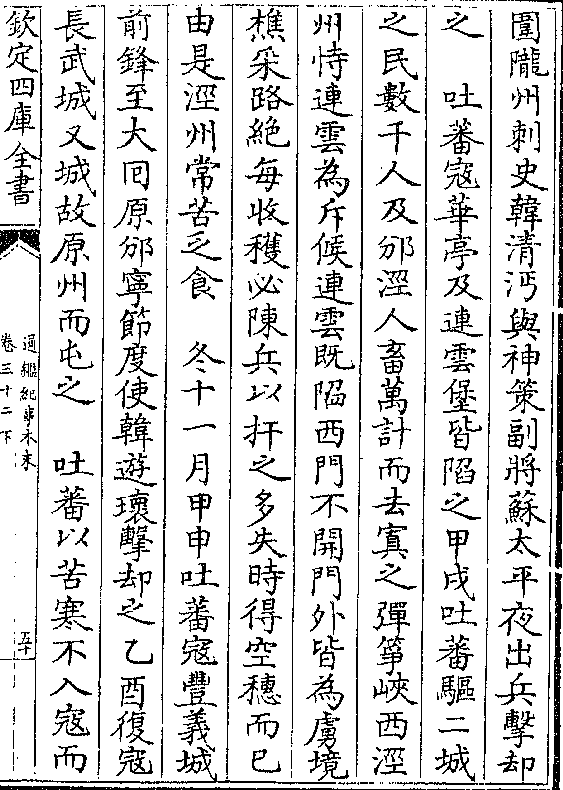 圍隴州刺史韓清沔與神策副將蘇太平夜出兵擊却
之　吐蕃寇華亭及連雲堡皆陷之甲戌吐蕃驅二城
之民數千人及邠涇人畜萬計而去寘之彈箏峽西涇
州恃連雲為斥候連雲既陷西門不開門外皆為虜境
樵采路絶每收穫必陳兵以扞之多失時得空穗而已
由是涇州常苦乏食　冬十一月甲申吐蕃寇豐義城
前鋒至大回原邠寧節度使韓遊瓌擊却之乙酉復寇
長武城又城故原州而屯之　吐蕃以苦寒不入寇而
欽定四庫全書
通鑑紀事本末
卷三十二下
五十